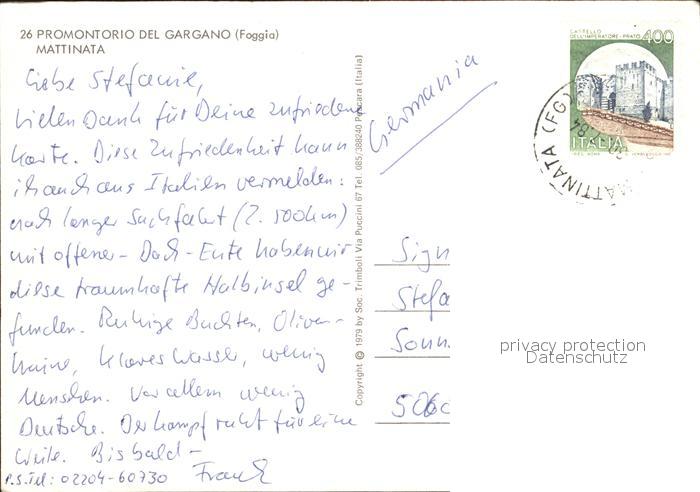 26 PROMONTORIO DEL GARGANO (Foggia)
MATTINATA
Liebe Stefanie,
vielen Dank für Deine zufriedene
Karte. Diese Zufriedenheit kann
ich auch aus Italien vermelden:
nach langer Suchfahrt (2.500km)
mit offener-Dach-Ente haben wir
diese traumhafte Halbinsel ge-
funden. Ruhige Buchten, Oliven-
haine, klares Wasser, wenig
Menschen. Vor allem wenig
Deutsche. Der Kampf ruht für eine
Weile. Bis bald -
Frank
P.S. Tel: 02204-60730
Copyright © 1979 by Soc. Trimboli Via Puccini 67 Tel. 085/388240 Pescara (Italia)
Germania
CASTELLO
DELL'IMPERATORE - PRATO
400
ITALIA
MATTINATA (FG)
Sign
Stefa
Sonn
506
privacy protection
Datenschutz